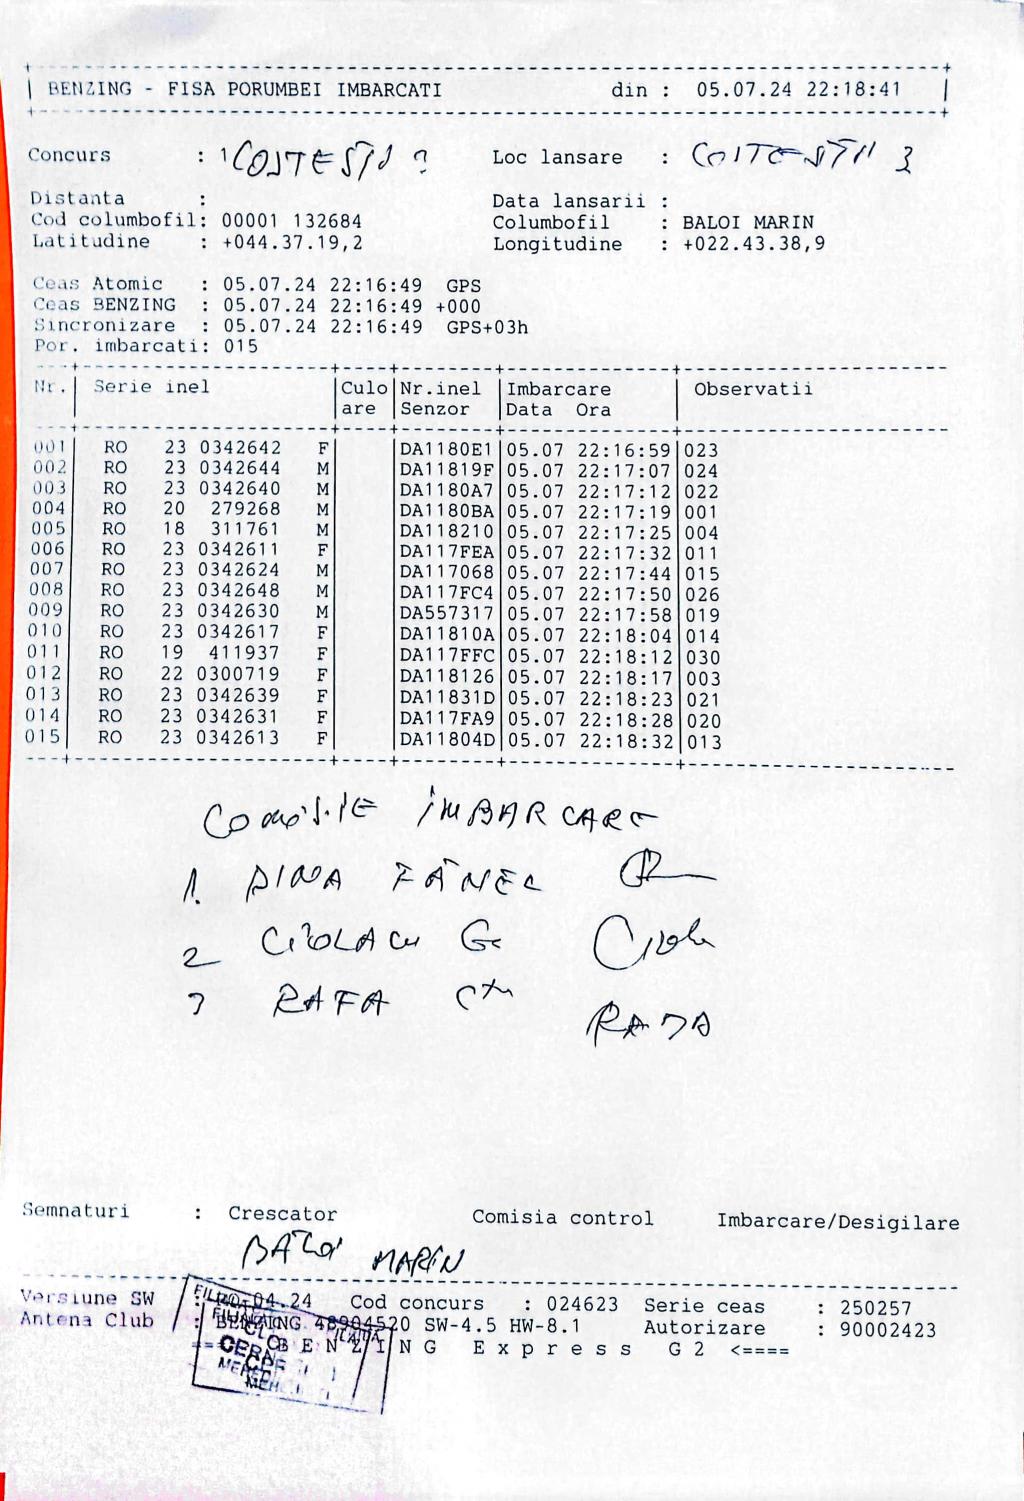 BENZING - FISA PORUMBEI IMBARCATI din : 05.07.24 22:18:41
Concurs : COSTESTI 3 Loc lansare : COSTESTII 3
Distanta : Data lansarii :
Cod columbofil: 00001 132684 Columbofil : BALOI MARIN
Latitudine : +044.37.19,2 Longitudine : +022.43.38,9
Ceas Atomic : 05.07.24 22:16:49 GPS
Ceas BENZING : 05.07.24 22:16:49 +000
Sincronizare : 05.07.24 22:16:49 GPS+03h
Por. imbarcati: 015
Nr. Serie inel Culo Nr.inel Imbarcare Observatii
are Senzor Data Ora
001 RO 23 0342642 F DA1180E1 05.07 22:16:59 023
002 RO 23 0342644 M DA11819F 05.07 22:17:07 024
003 RO 23 0342640 M DA1180A7 05.07 22:17:12 022
004 RO 20 279268 M DA1180BA 05.07 22:17:19 001
005 RO 18 311761 M DA118210 05.07 22:17:25 004
006 RO 23 0342611 F DA117FEA 05.07 22:17:32 011
007 RO 23 0342624 M DA117068 05.07 22:17:44 015
008 RO 23 0342648 M DA117FC4 05.07 22:17:50 026
009 RO 23 0342630 M DA557317 05.07 22:17:58 019
010 RO 23 0342617 F DA11810A 05.07 22:18:04 014
011 RO 19 411937 F DA117FFC 05.07 22:18:12 030
012 RO 22 0300719 F DA118126 05.07 22:18:17 003
013 RO 23 0342639 F DA11831D 05.07 22:18:23 021
014 RO 23 0342631 F DA117FA9 05.07 22:18:28 020
015 RO 23 0342613 F DA11804D 05.07 22:18:32 013
COMISIE IMBARCARE
1. DINA FĂNEL
2 CIOLACU G
3 RAFA
Semnaturi : Crescator Comisia control Imbarcare/Desigilare
BALOI MARIN
Versiune SW 04.24 Cod concurs : 024623 Serie ceas : 250257
Antena Club : BENZING 48904520 SW-4.5 HW-8.1 Autorizare : 90002423
BENZING Express G2 <====